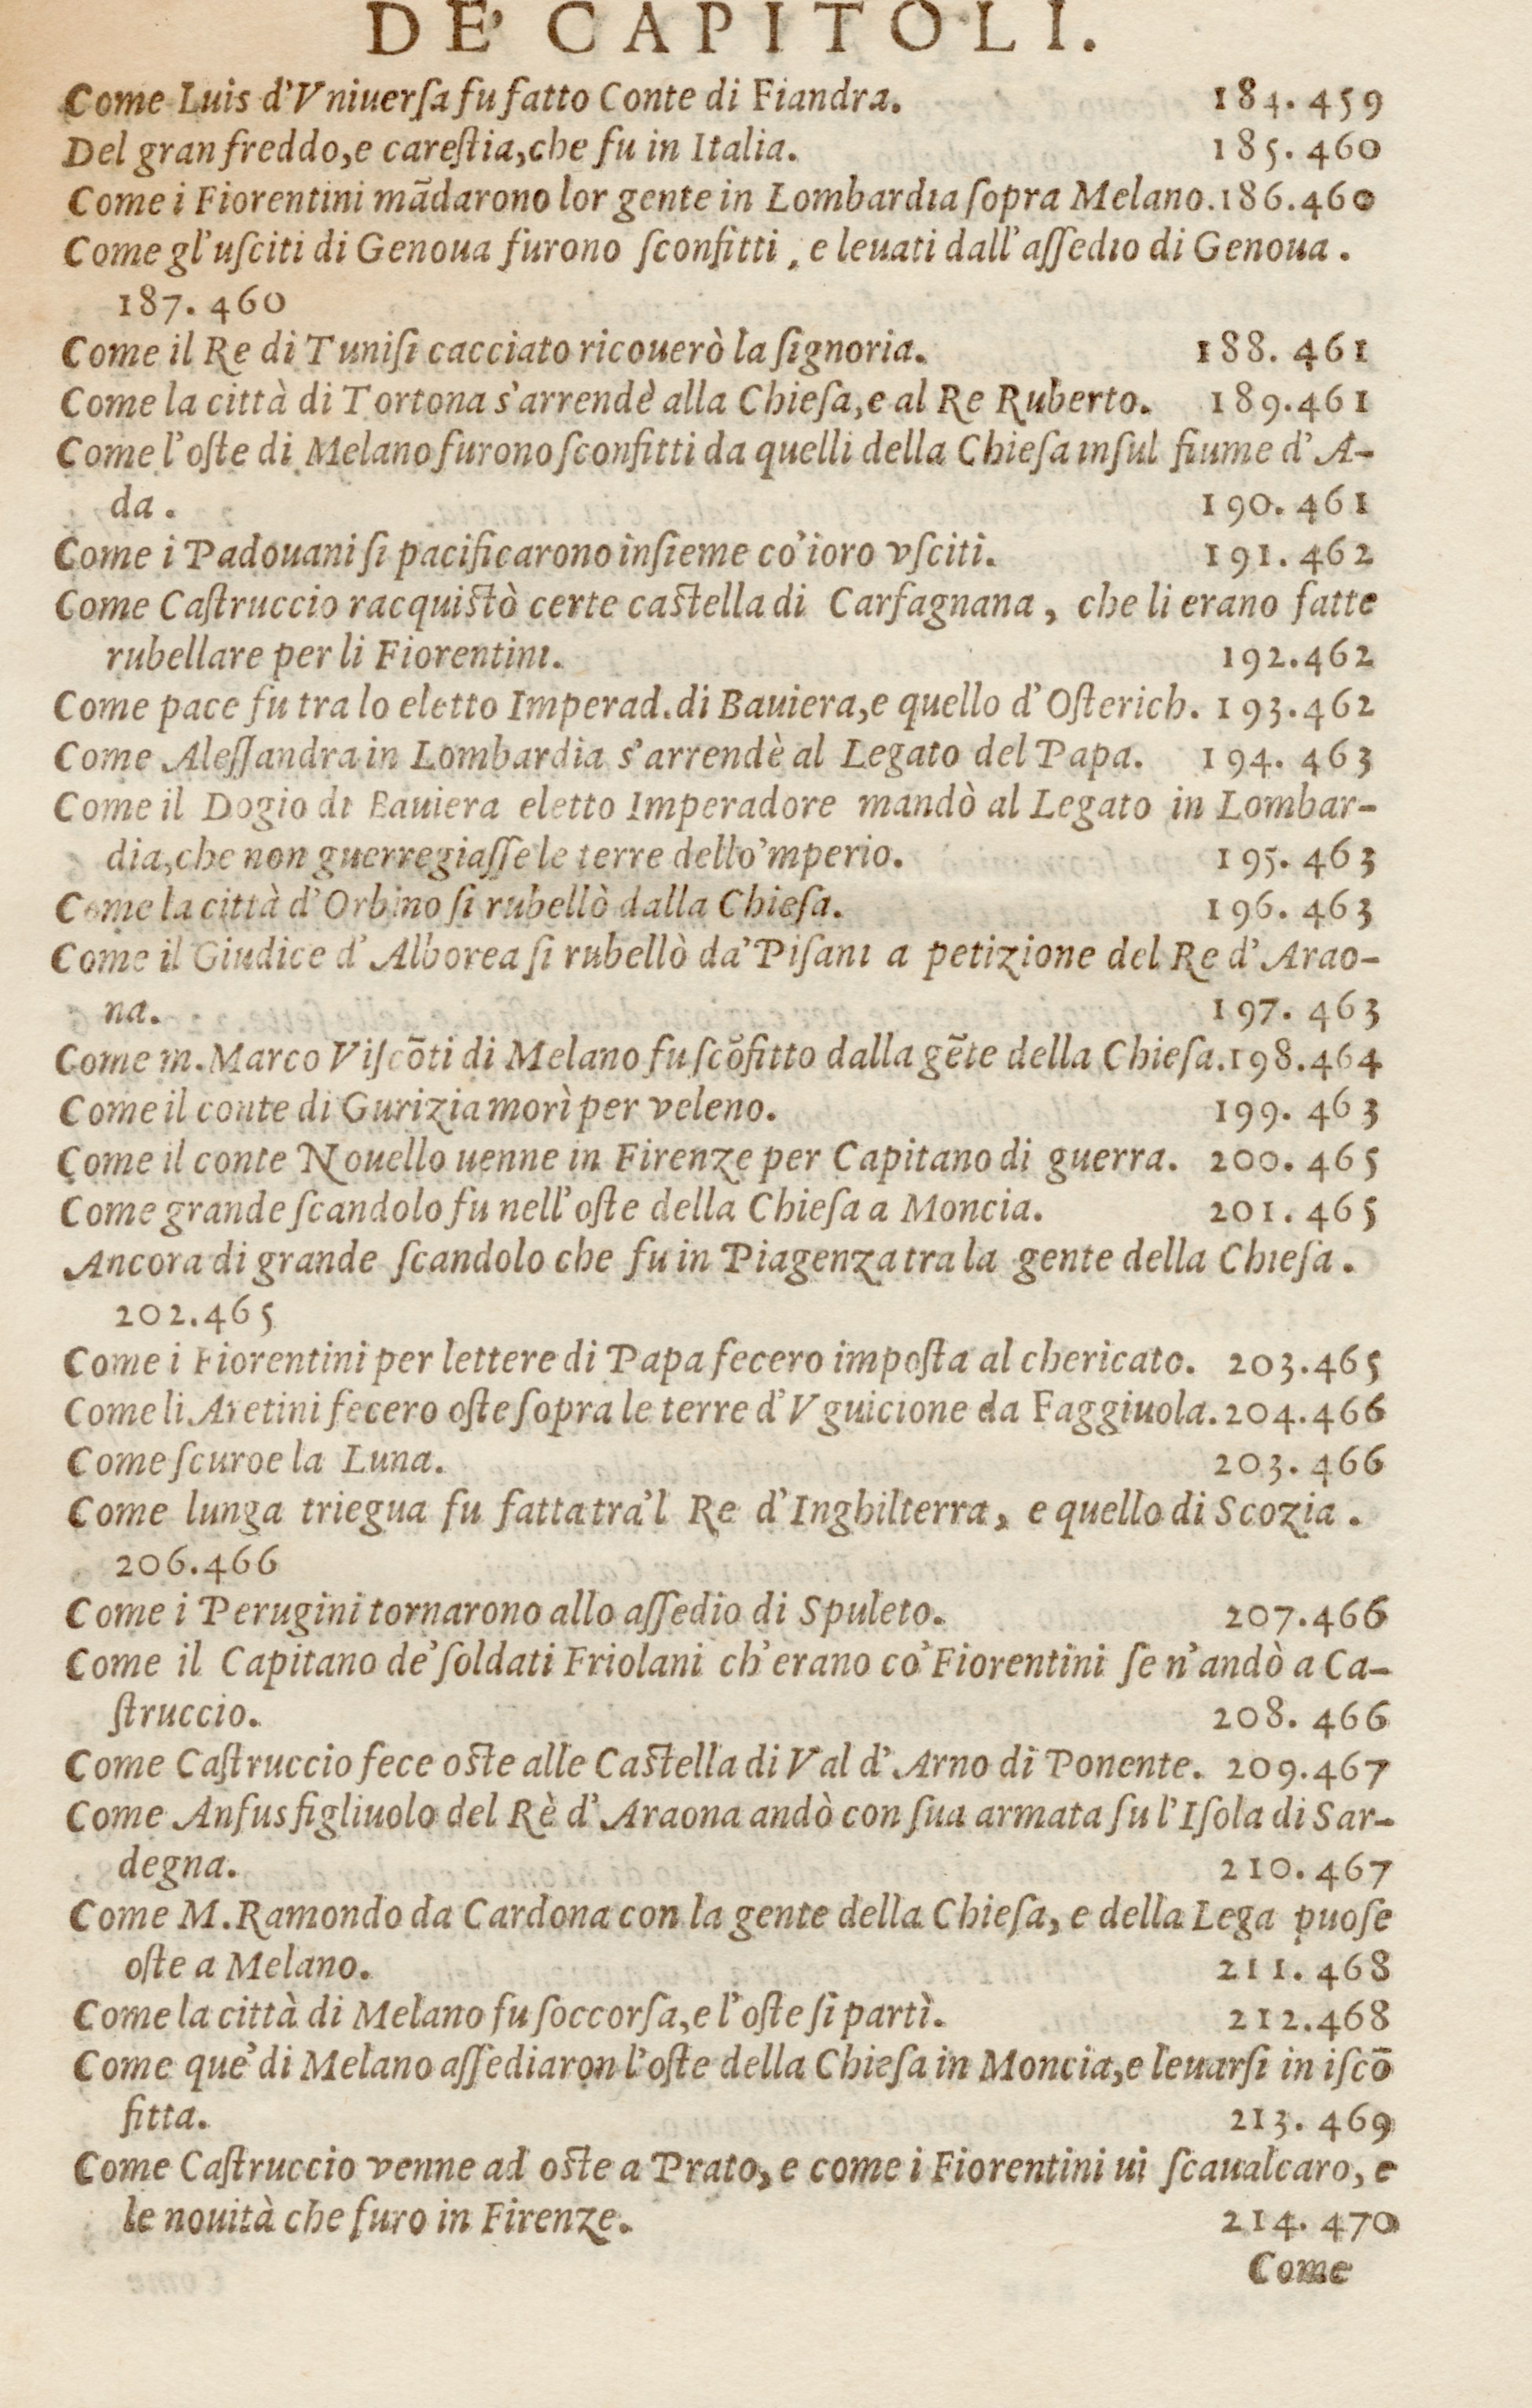 DE' CAPITOLI.
Come Luis d'Vniuerſa fu fatto Conte di Fiandra. 184. 459
Del gran freddo, e careſtia, che fu in Italia. 185. 460
Come i Fiorentini mādarono lor gente in Lombardia ſopra Melano. 186. 460
Come gl'uſciti di Genoua furono ſconfitti, e leuati dall'aſſedio di Genoua.
187. 460
Come il Re di Tuniſi cacciato ricouerò la ſignoria. 188. 461
Come la città di Tortona s'arrendè alla Chieſa, e al Re Ruberto. 189. 461
Come l'oſte di Melano furono ſconfitti da quelli della Chieſa inſul fiume d'A-
da. 190. 461
Come i Padouani ſi pacificarono inſieme co'ioro vſciti. 191. 462
Come Caſtruccio racquiſtò certe caſtella di Carfagnana, che li erano fatte
rubellare per li Fiorentini. 192. 462
Come pace fu tra lo eletto Imperad. di Bauiera, e quello d'Oſterich. 193. 462
Come Aleſſandra in Lombardia s'arrendè al Legato del Papa. 194. 463
Come il Dogio di Bauiera eletto Imperadore mandò al Legato in Lombar-
dia, che non guerregiaſſe le terre dello'mperio. 195. 463
Come la città d'Orbino ſi rubellò dalla Chieſa. 196. 463
Come il Giudice d'Alborea ſi rubellò da'Piſani a petizione del Re d'Arao-
na. 197. 463
Come m. Marco Viſcōti di Melano fu ſcōfitto dalla gēte della Chieſa. 198. 464
Come il conte di Gurizia morì per veleno. 199. 463
Come il conte Nouello uenne in Firenze per Capitano di guerra. 200. 465
Come grande ſcandolo fu nell'oſte della Chieſa a Moncia. 201. 465
Ancora di grande ſcandolo che fu in Piagenza tra la gente della Chieſa.
202. 465
Come i Fiorentini per lettere di Papa fecero impoſta al chericato. 203. 465
Come li Aretini fecero oſte ſopra le terre d'Vguicione da Faggiuola. 204. 466
Come ſcuroe la Luna. 203. 466
Come lunga triegua fu fatta tra'l Re d'Inghilterra, e quello di Scozia.
206. 466
Come i Perugini tornarono allo aſſedio di Spuleto. 207. 466
Come il Capitano de'ſoldati Friolani ch'erano co'Fiorentini ſe n'andò a Ca-
ſtruccio. 208. 466
Come Caſtruccio fece oſte alle Caſtella di Val d'Arno di Ponente. 209. 467
Come Anfus figliuolo del Rè d'Araona andò con ſua armata ſu l'Iſola di Sar-
degna. 210. 467
Come M. Ramondo da Cardona con la gente della Chieſa, e della Lega puoſe
oſte a Melano. 211. 468
Come la città di Melano fu ſoccorſa, e l'oſte ſi partì. 212. 468
Come que'di Melano aſſediaron l'oſte della Chieſa in Moncia, e leuarſi in iſcō
fitta. 213. 469
Come Caſtruccio venne ad oſte a Prato, e come i Fiorentini ui ſcaualcaro, e
le nouità che furo in Firenze. 214. 470
Come